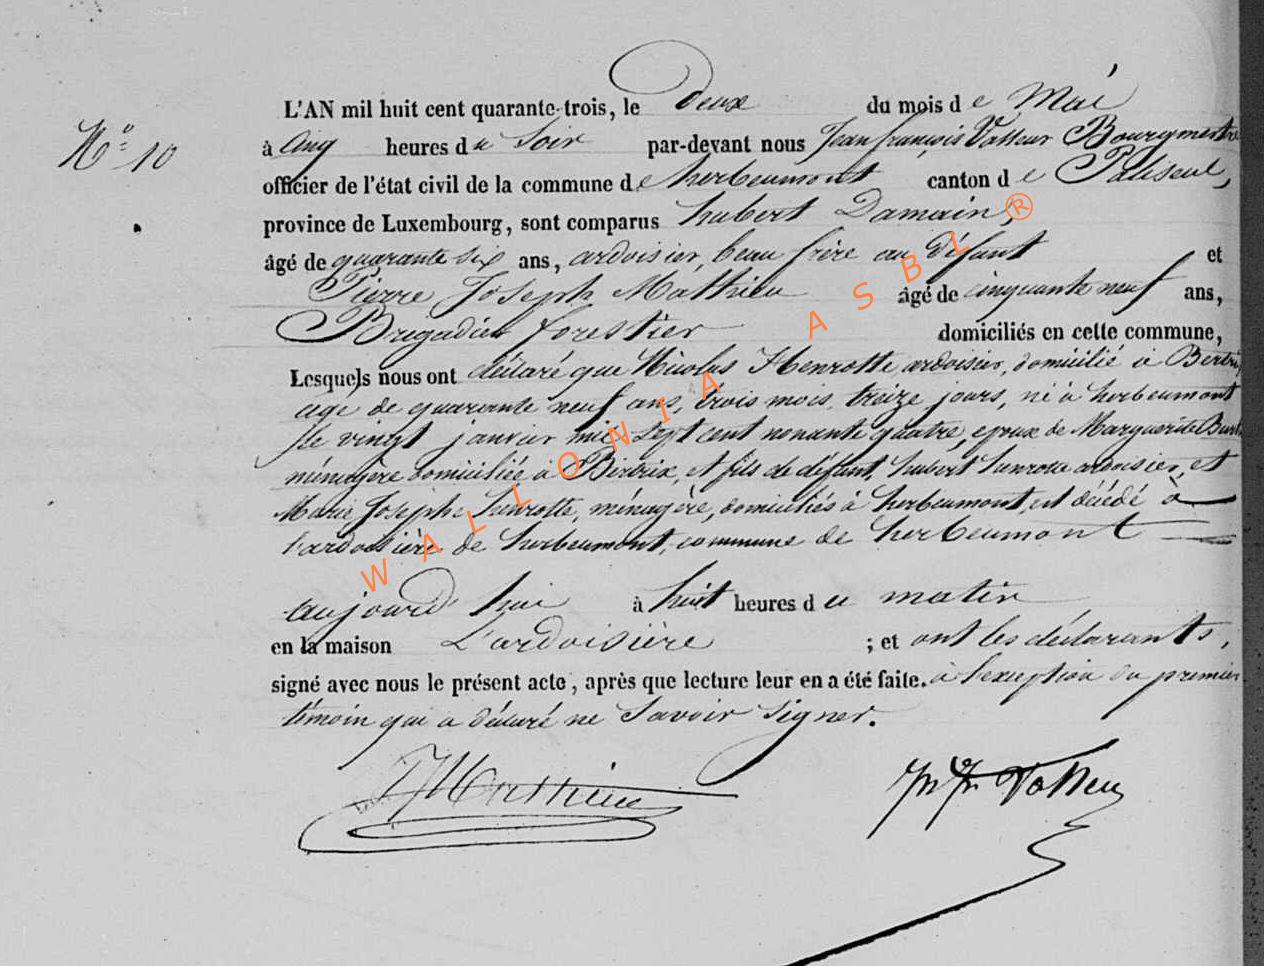 L'AN mil huit cent quarante-trois, le Deux du mois de Mai
N° 10
à Cinq heures du Soir par-devant nous Jean françois Vasseur Bourgmestre
officier de l'état civil de la commune de herbeumont canton de Paliseul,
province de Luxembourg, sont comparus hubert Damain,
âgé de quarante six ans, ardoisier, beau frère au défunt et
Pierre Joseph Mathieu âgé de cinquante neuf ans,
Brigadier forestier domiciliés en cette commune,
Lesquels nous ont déclaré que Nicolas Henrotte ardoisier, domicilié à Bertrix
agé de quarante neuf ans, trois mois, treize jours, né à herbeumont
le vingt janvier mil sept cent nonante quatre, epoux de Marguerite
ménagère domiciliée à Bertrix, et fils de défunt hubert henrotte ardoisier, et
Marie Josephe henrotte, ménagère, domiciliés à herbeumont, est décédé à
l'ardoisière de herbeumont, commune de herbeumont
aujourd'hui à huit heures du matin
en la maison L'ardoisière ; et ont les déclarants,
signé avec nous le présent acte, après que lecture leur en a été faite. à l'exception du premier
témoin qui a déclaré ne Savoir signer.
PJMathieu
WALLONIA ASBL ®